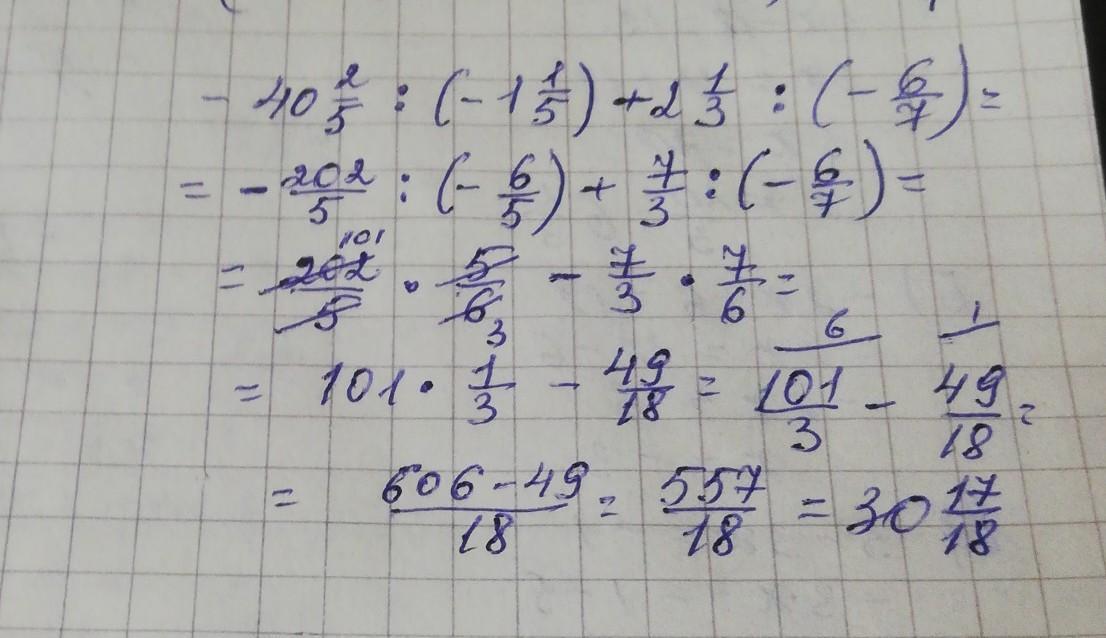 - 40 2/5 : (- 1 1/5) + 2 1/3 : (- 6/7) =
= - 202/5 : (- 6/5) + 7/3 : (- 6/7) =
= 202/5 101 · 5/6 3 - 7/3 · 7/6 =
= 101 · 1/3 - 49/18 = 101/3 6 - 49/18 1 =
= 606-49/18 = 557/18 = 30 17/18